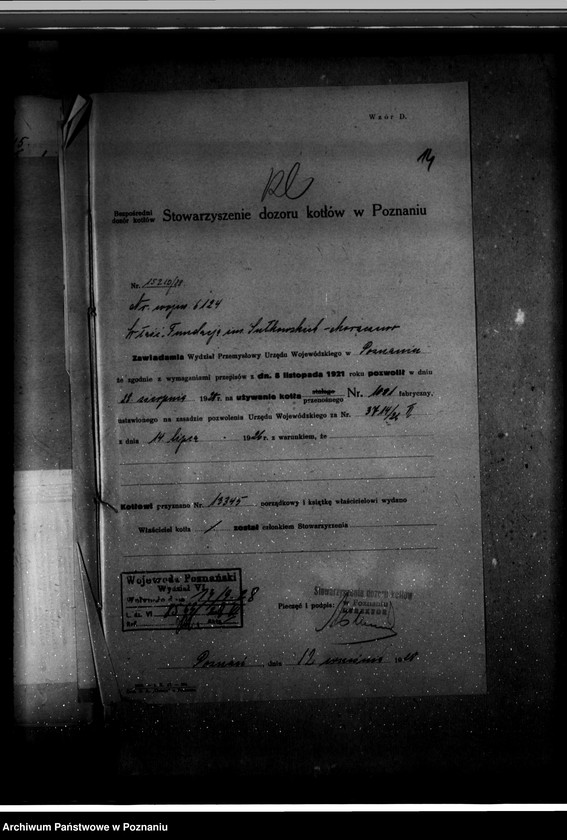 Wzór D.
14
Bezpośredni
dozór kotłów
Stowarzyszenie dozoru kotłów w Poznaniu
Nr. 15212/28
Nr. wojew. 6124
Zawiadamia Wydział Przemysłowy Urzędu Wojewódzkiego w Poznaniu
że zgodnie z wymaganiami przepisów z dn. 8 listopada 1921 roku pozwolił w dniu
28 sierpnia 1928 r. na używanie kotła stałego przenośnego Nr. 1021 fabryczny,
ustawionego na zasadzie pozwolenia Urzędu Wojewódzkiego za Nr. 3714/26 II
z dnia 14 lipca 1926 r. z warunkiem, że
Kotłowi przyznano Nr. 13345 porządkowy i książkę właścicielowi wydano
Właściciel kotła / został członkiem Stowarzyszenia
Wojewoda Poznański
Wydział VI.
17/9.28
L. dz. VI
Ref.
Stowarzyszenie dozoru kotłów
w Poznaniu
Pieczęć i podpis:
Poznań dnia 12 września 1928
Archiwum Państwowe w Poznaniu